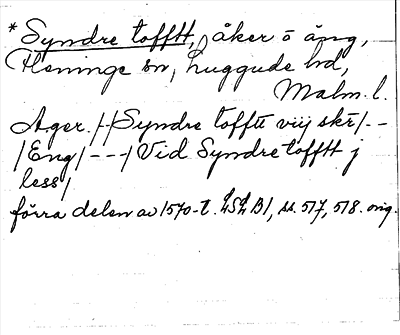 *Syndre tofftt, åker o äng,
Heninge sn, Luggude hd,
Malm. l.
Ager. /-/ Syndre tofftt viij skr /--
/Eng/ --- / Vid Syndre tofftt j
less/
förra delen av 1570-t. LSLB1, ss. 517, 518. orig.